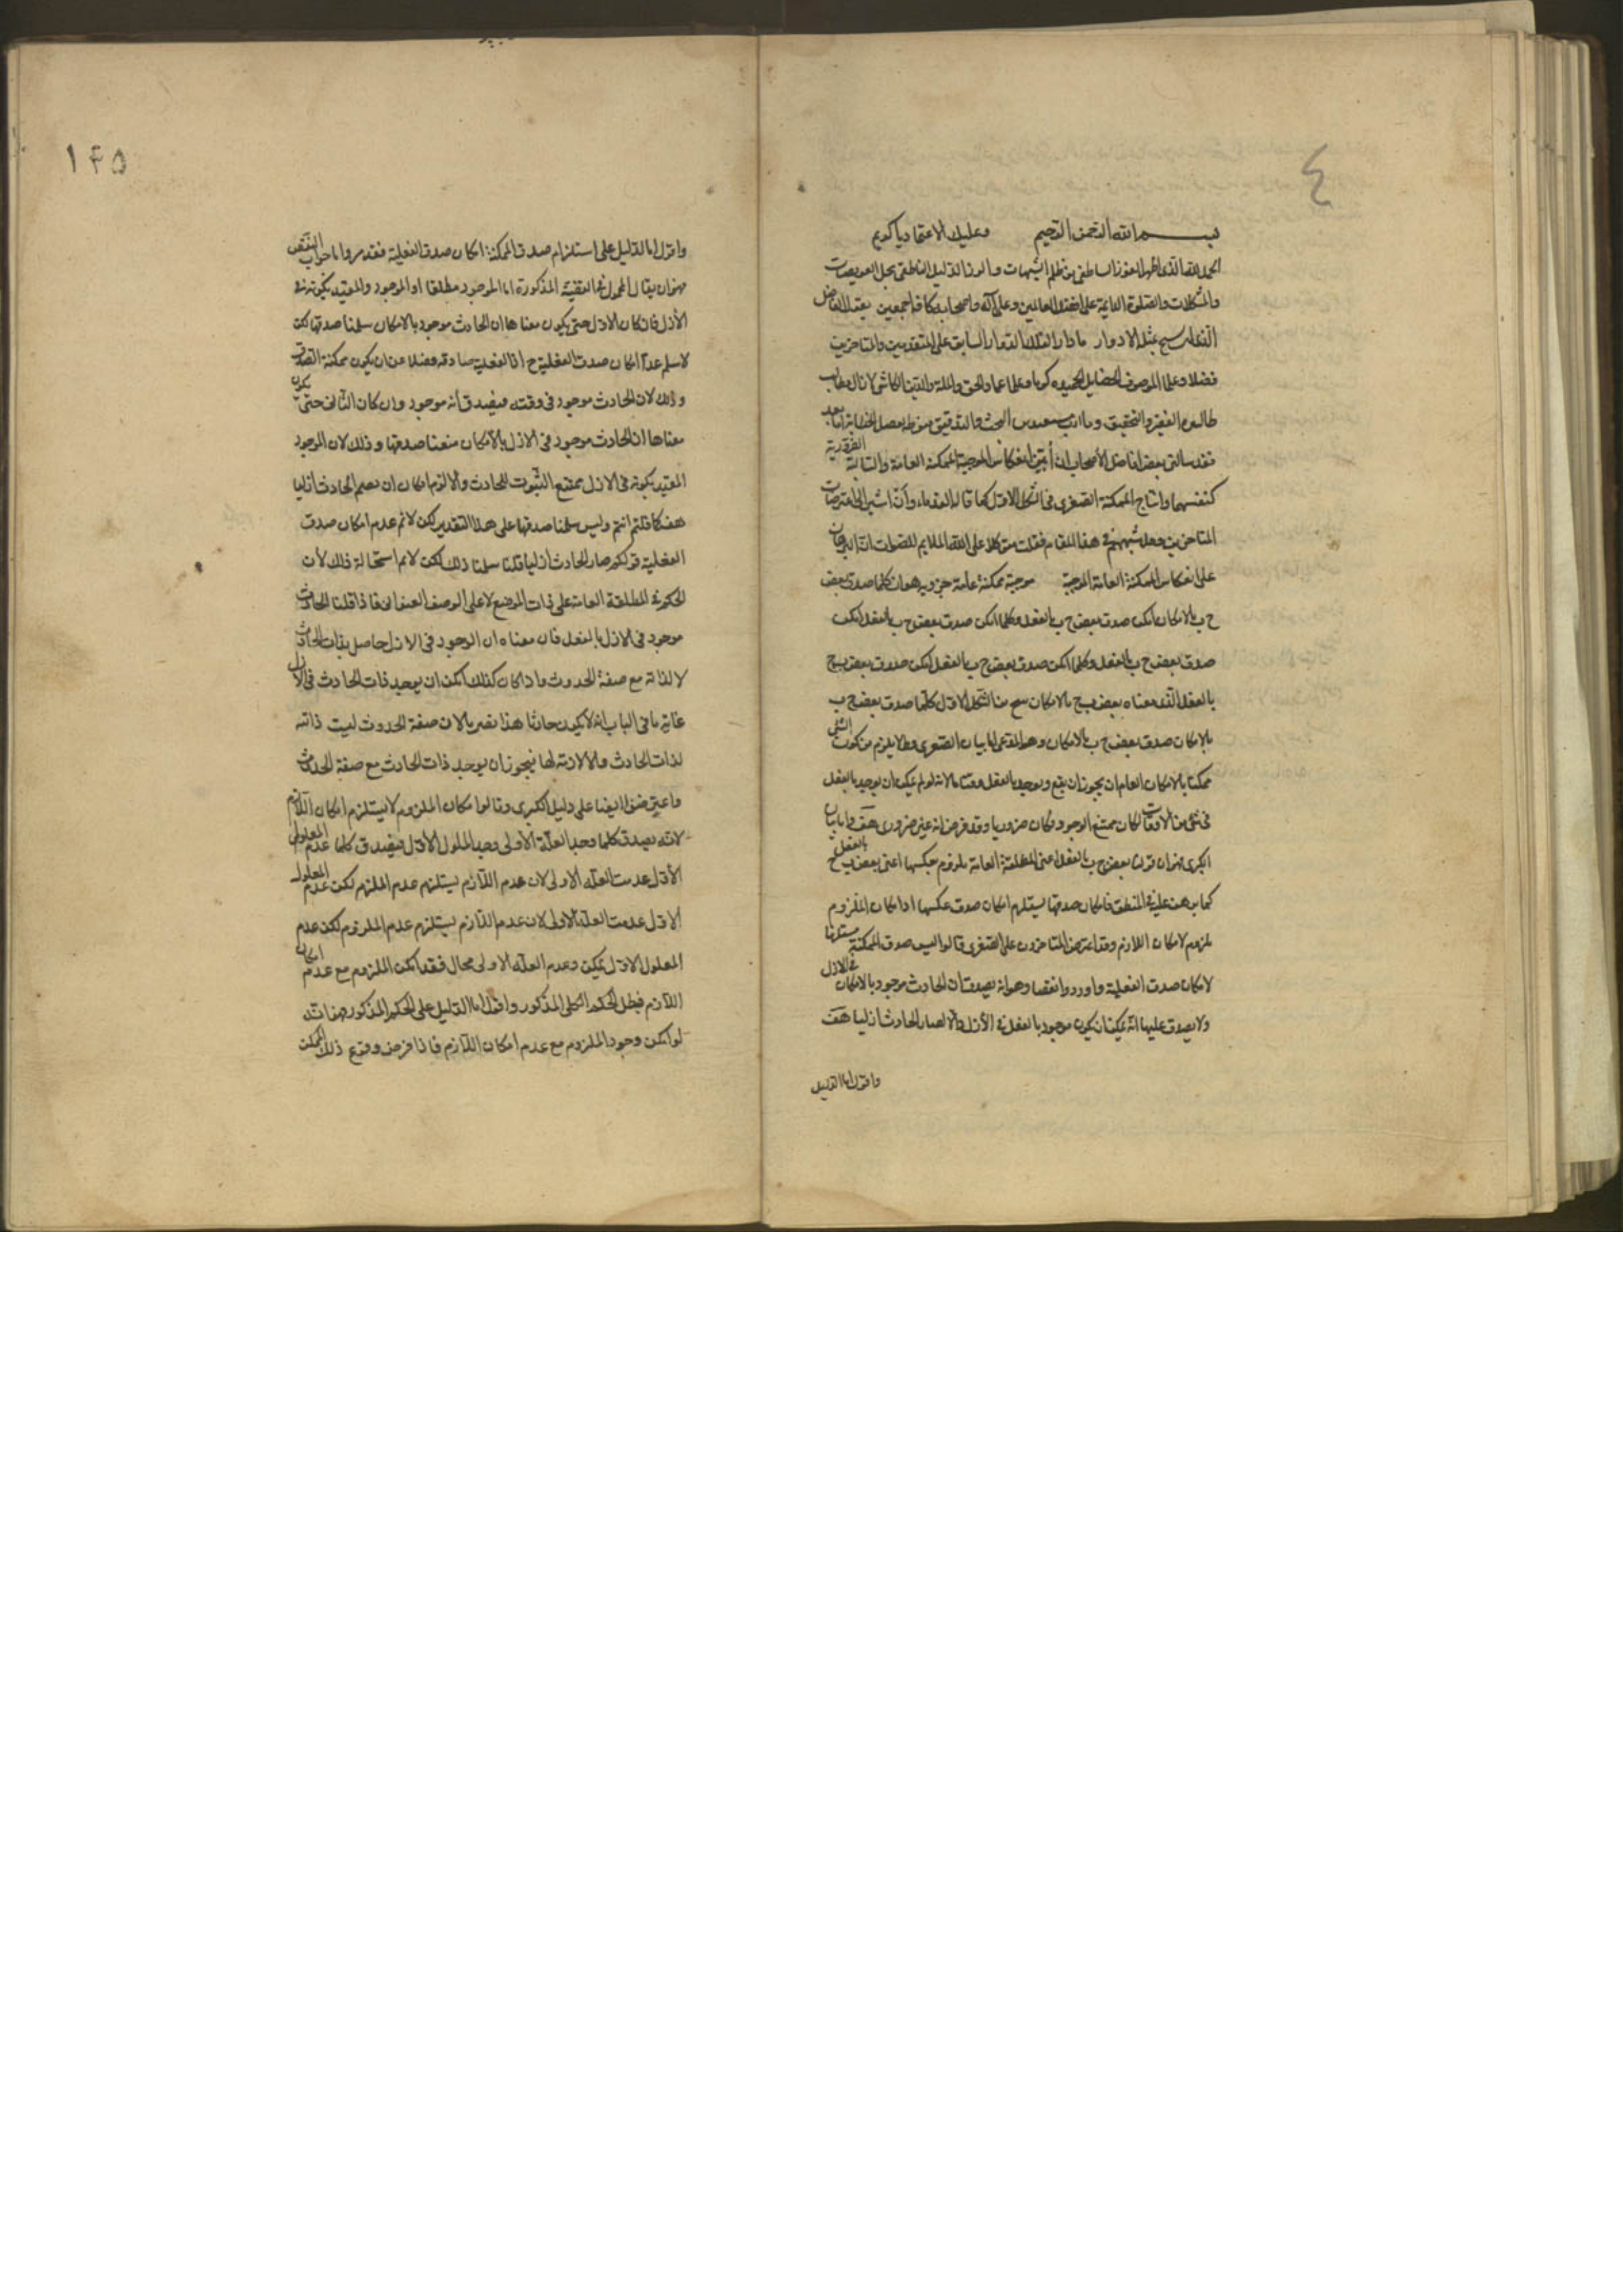 ٤
بسم الله الرحمن الرحيم وعليك الاعتماد يا كريم
الحمد لله الذي اظهر من ظلم الشبهات والدليل الناطق بحل العويصات
والمشكلات والصلوة الدايمة على افضل العالمين وعلى آله واصحابه كافة اجمعين يقول الفاضل
الذي لم يسمح بمثله الادوار ما دار الفلك الدوار السابق على المتقدمين والمتاخرين
فضلا وعلما الموصوف بالخصايل الحميدة كرما وحلما عماد الحق والملة والدين الكاشي لا زال
طالبو والتحقيق البحث والتدقيق اما بعد
فقد سالني بعض افاضل الاصحاب ان أبين انعكاس الموجبة الممكنة العامة والسالبة الضرورية
كنفسهما وانتاج الممكنة الصغرى في الشكل الاول كما قاله القدماء وأن اشير الى اعتراضات
المتاخرين وحل شبههم في هذا المقام فقلت متوكلا على الله الملهم للصواب اما البرهان
على انعكاس الممكنة العامة الموجبة موجبة ممكنة عامة جزوية هو ان كلما صدق بعض
ج ب بالامكان امكن صدق بعض ج ب بالفعل وكلما امكن صدق بعض ج ب بالفعل امكن
صدق بعض ج ب بالفعل وكلما امكن صدق بعض ج ب بالفعل امكن صدق بعض ب ج
بالفعل الذي معناه بعض ب ج بالامكان ينتج من الشكل الاول كلما صدق بعض ج ب
بالامكان صدق بعض ج ب بالامكان وهو المدعى اما بيان الصغرى فلما يلزم من كون الشي
ممكنا بالامكان العام ان يجوز ان يقع ويوجد بالفعل وقتا ما لانه لو لم يمكن ان يوجد بالفعل
في شي من الاوقات لكان ممتنع الوجود فكان ضروريا وقد فرض انه غير ضروري هف واما بيان
الكبرى فهو ان قولنا بعض ج ب بالفعل اعني المطلقة العامة ملزوم لعكسها اعني بعض ب ج بالفعل
كما برهن عليه في المنطق فامكان صدقها يستلزم امكان صدق عكسها اذ امكان الملزوم
ملزوم لامكان اللازم وقد اعترض المتاخرون على الصغرى قالوا ليس صدق الممكنة مستلزما
لامكان صدق الفعلية واوردوا نقضا وهو انه يصدق ان الحادث موجود بالامكان في الازل
ولا يصدق عليها انه يمكن ان يكون موجود بالفعل في الأزل والا لصار الحادث ازليا هف
واقول اما الدليل
١٤٥
واقول اما الدليل على استلزام صدق الممكنة امكان صدق الفعلية فقد مر واما جواب النقض
فهو ان يقال المحمول في القضية المذكورة اما الموجود مطلقا او الموجود والمقيد بكونه في
الأزل فان كان الاول حتى يكون معناها ان الحادث موجود بالامكان سلمنا صدقها لكن
لا نسلم عدم امكان صدق الفعلية ح اذ الفعلية صادقة فضلا عن ان يكون ممكنة الصدق
وذلك لان الحادث موجود في وقته فيصدق أنه موجود وان كان الثاني حتى يكون
معناها ان الحادث موجود في الازل بالامكان منعنا صدقها وذلك لان الموجود
المقيد بكونه في الازل ممتنع الثبوت للحادث والا لزم امكان ان يصير الحادث ازليا
هف كما قلتم انتم وليس سلمنا صدقها على هذا التقدير لكن لا نم عدم امكان صدق
الفعلية قولكم صار الحادث ازليا قلنا سلمنا ذلك لكن لا نم استحالة ذلك لأن
الحكم في المطلقة العامة على ذات الموضوع لا على الوصف العنواني فاذا قلنا الحادث
موجود في الازل بالفعل فان معناه ان الوجود في الازل حاصل بذات الحادث
لا لذاته مع صفة الحدوث واذا كان كذلك امكن ان يوجد ذات الحادث في الازل
غاية ما في الباب انه لا يكون حادثا هذا لان صفة الحدوث ليست ذاتيه
لذات الحادث ولا لازمة لها فيجوز ان يوجد ذات الحادث مع صفة الحدوث
واعترضوا ايضا على دليل الكبرى وقالوا امكان الملزوم لا يستلزم امكان اللازم
لانه يصدق كلما وجد العلة الأولى وجد المعلول الأول فيصدق كلما عدم المعلول
الأول عدمت العلة الاولى لان عدم اللازم يستلزم عدم الملزوم لكن عدم المعلول
الاول عدمت العلة الاولى لان عدم اللازم يستلزم عدم الملزوم لكن عدم
المعلول الاول ممكن وعدم العلة الاولى محال فقد امكن الملزوم مع عدم امكان
اللازم فبطل الحكم الكلي المذكور واقول اما الدليل على الحكم المذكور فهو انه
لو امكن وجود الملزوم مع عدم امكان اللازم فاذا فرض وقوع ذلك الممكن